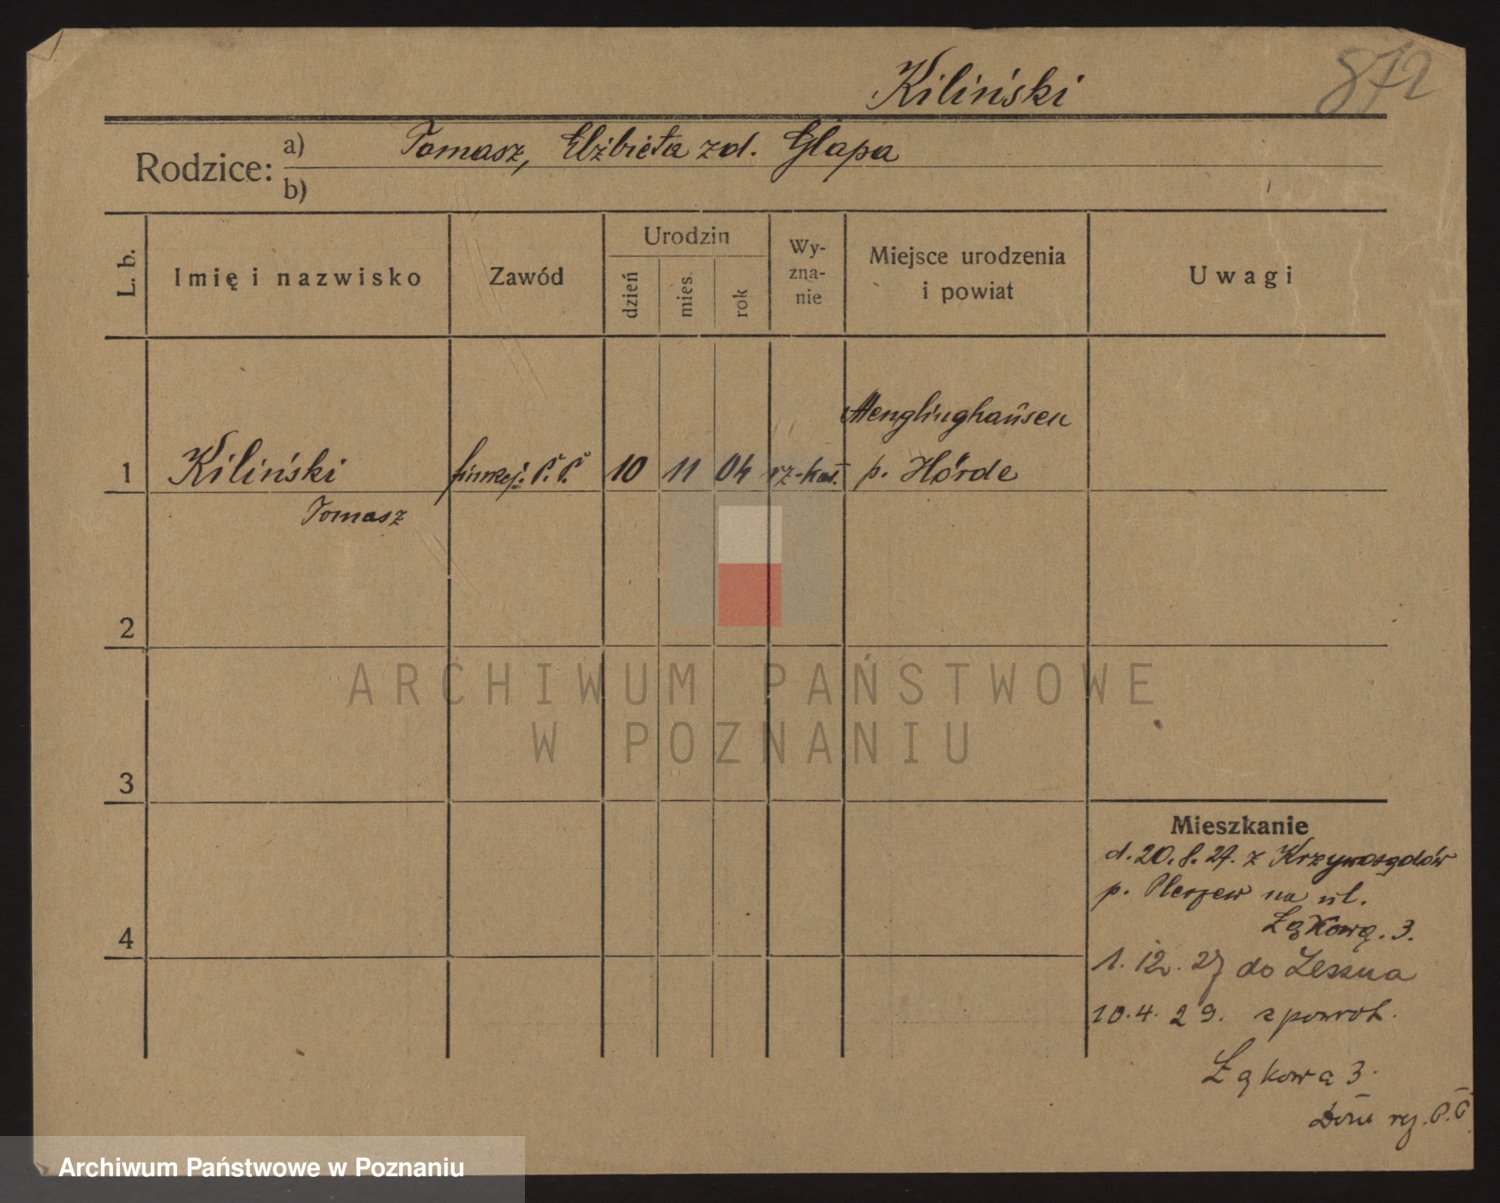 Kiliński 872
Rodzice: a) Tomasz, Elżbieta zd. Glapa
b)
L. b. Imię i nazwisko Zawód Urodzin dzień mies. rok Wy-zna-nie Miejsce urodzenia i powiat Uwagi
Menglinghausen
1 Kiliński funkcj. P. P. 10 11 04 rz-kat. p. Hörde
Tomasz
2
ARCHIWUM PAŃSTWOWE
W POZNANIU
3
Mieszkanie
d. 20.8.27. z Krzywosądów
p. Pleszew na ul.
Łąkową. 3.
4
1. 12. 27 do Leszna
10.4.29. z powrot.
Łąkowa 3.
P.P.
Archiwum Państwowe w Poznaniu